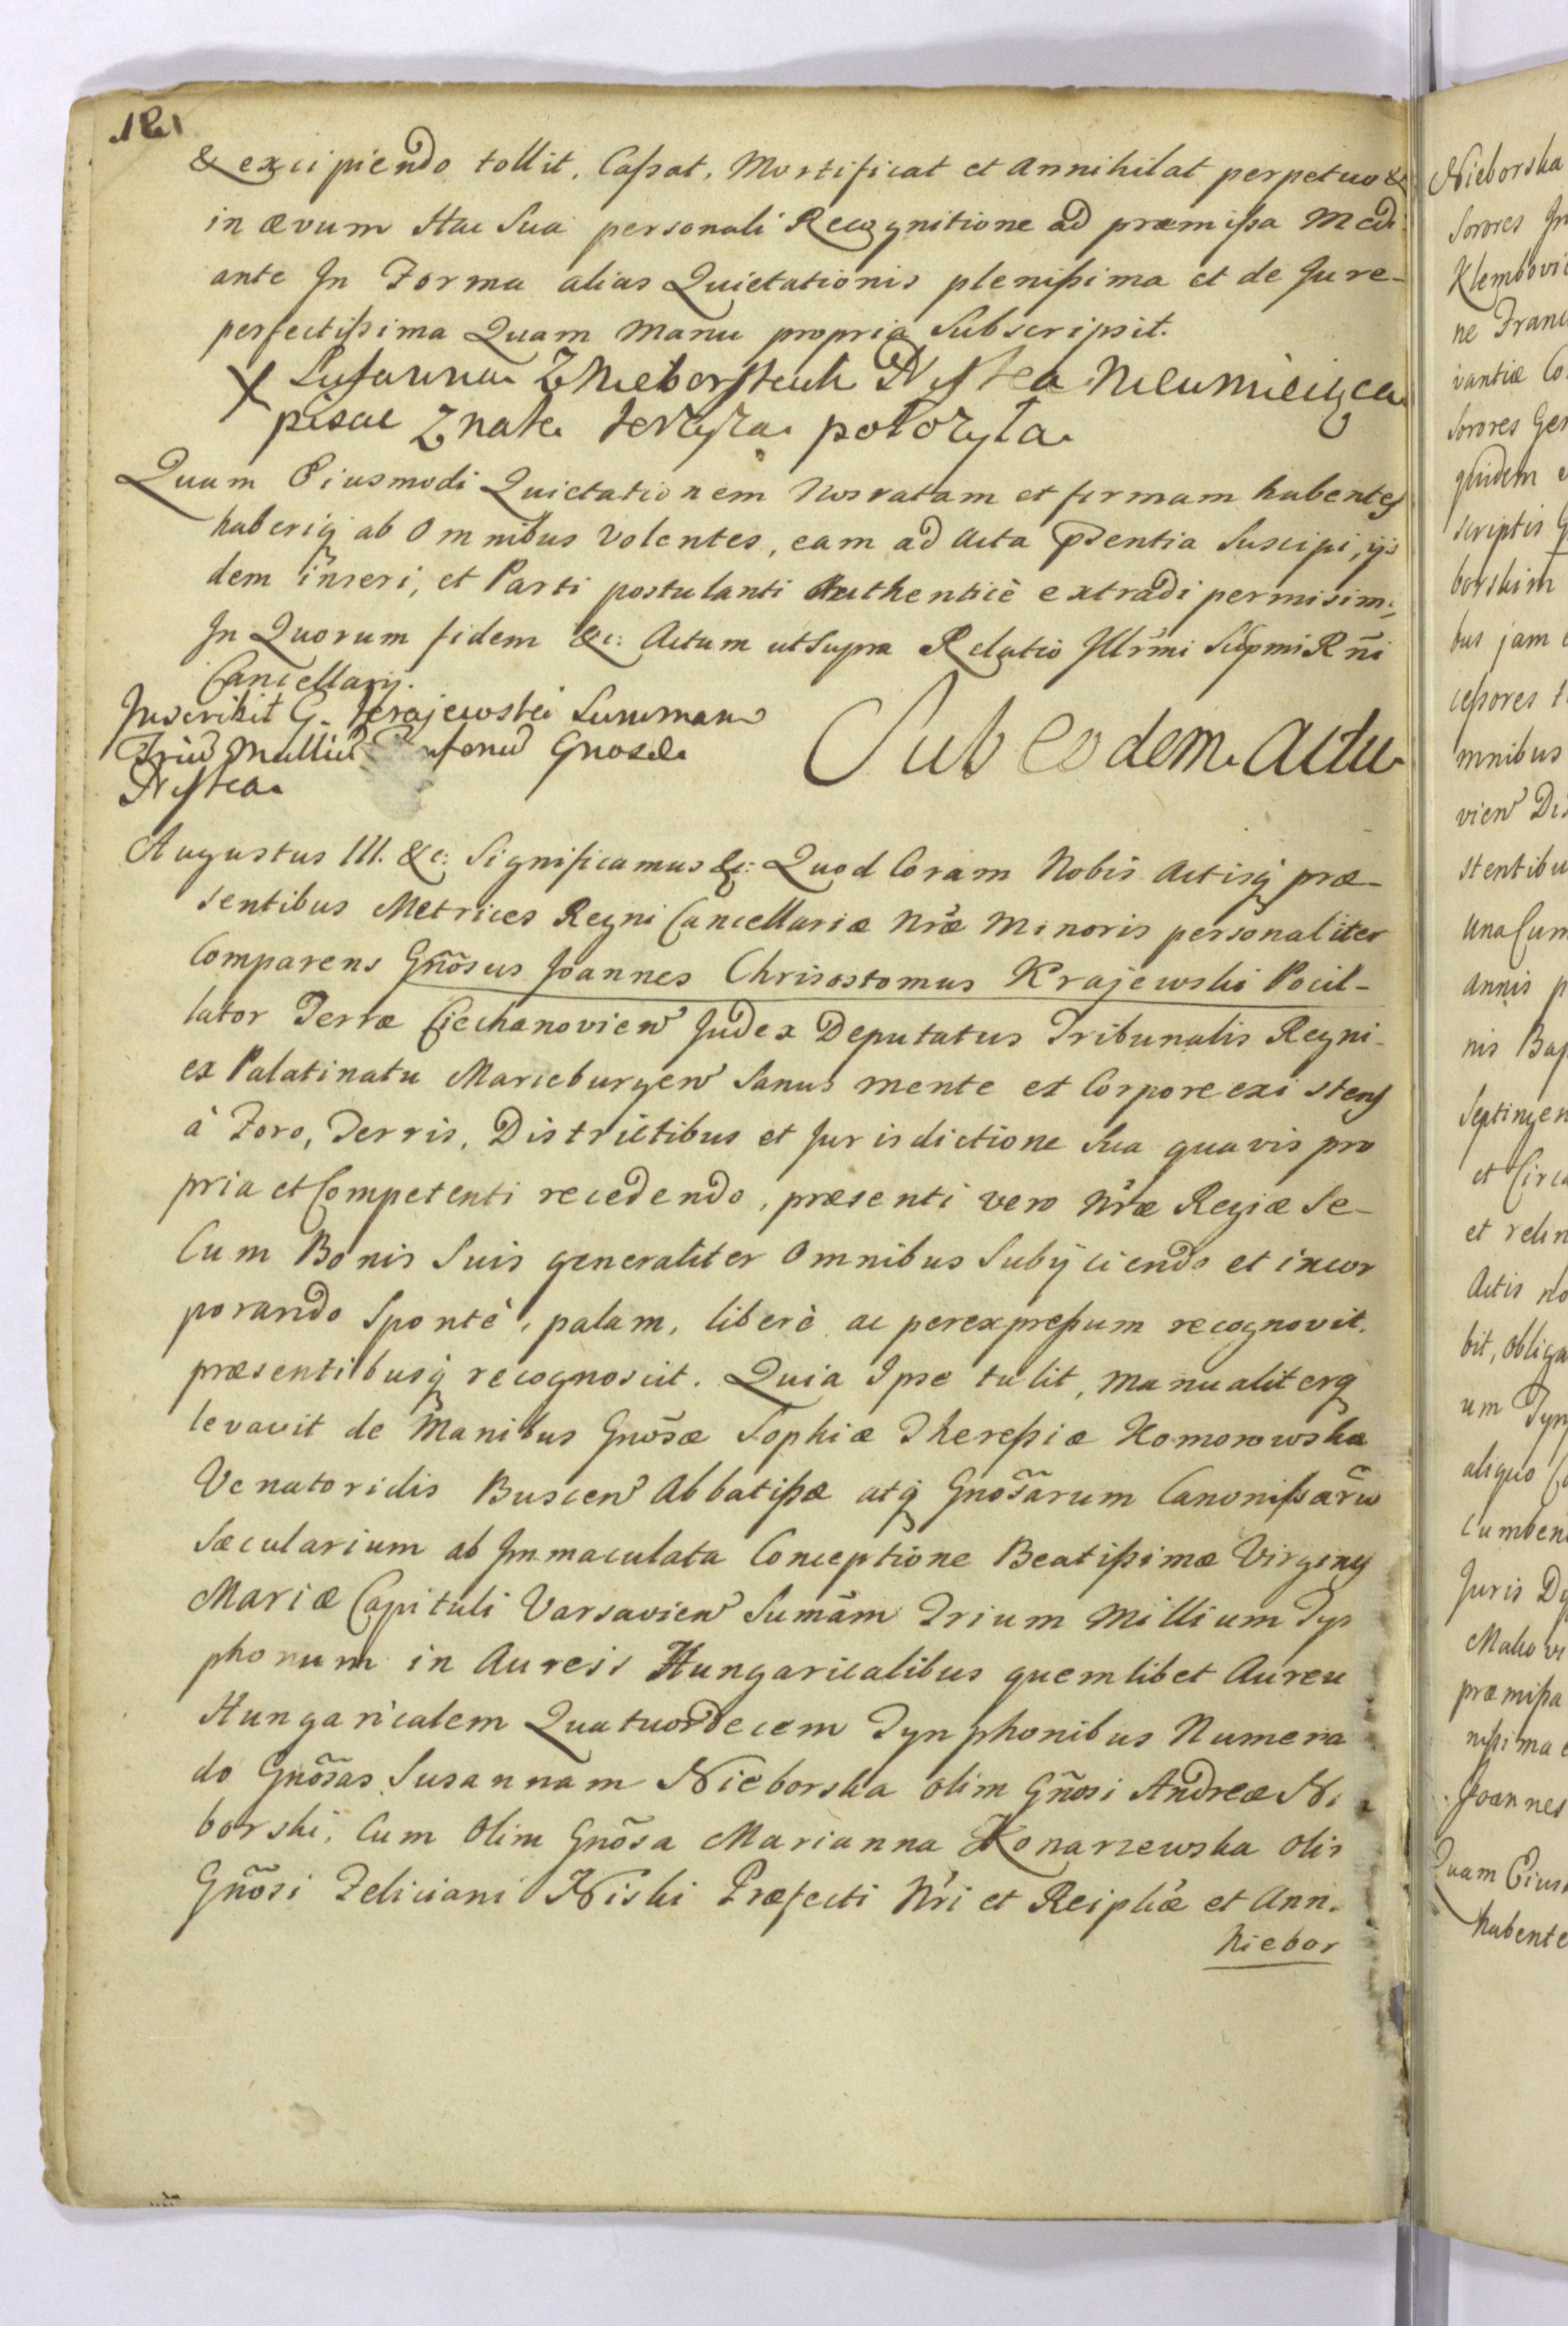 & excipiendo tollit, Cassat, Mortificat et Annihilat perpetuo &
in ævum Hac Sua personali Recognitione ad præmissa Medi
ante In Forma alias Quietationis plenissima et de Jure-
perfectissima Quam Manu propria Subscripsit.
X Zusanna Z Nieborskich Niska Nieumieiąca
pisac Znak Krzyża położyła
Quam Eiusmodi Quietationem Nos ratam et firmam habentes
haberiq ab Omnibus Volentes, eam ad Acta Pṙentia Suscipi, ijs
dem inseri, et Parti postulanti Authenticè extradi permisim9
In Quorum fidem &c: Actum ut Supra Relatio Illr̃mi Supmi Rñi
Cancellarij.
Inscribit G. Krajewski Summam
Triũ Milliũ Gnosæ
Niska
Sub eodem Actu
Augustus III. &c: Significamus &c: Quod Coram Nobis Actisq præ-
sentibus Metrices Regni Cancellariæ Nr̃æ Minoris personaliter
Comparens Gñosus Joannes Chrisostomus Krajewski Pocil-
lator Terræ Ciechanovien Judex Deputatus Tribunalis Regni-
ex Palatinatu Marieburgen Sanus mente et Corpore existens
à Foro, Terris, Districtibus et Jurisdictione Sua quavis pro
pria et Competenti recedendo, præsenti vero Nr̃æ Regiæ Se-
Cum Bonis Suis generaliter Omnibus Subijciendo et incor
porando Spontè, palam, liberè ac per expressum recognovit,
præsentibusq recognoscit. Quia Ipse tulit, manualiterq
levavit de Manibus Gnõsæ Sophiæ Theressiæ Komorowska
Venatoridis Buscen Abbatissæ atq Gnõsarum Canonissarũ
Sæcularium ab Immaculata Conceptione Beatissimæ Virginis
Mariæ Capituli Varsavien Sumãm Trium Millium Tyn
phonum in Aureis Hungaricalibus quemlibet Aureu
Hungaricalem Quatuordecem Tynphonibus Numera
do Gnõsas Susannam Nieborska olim Gñosi Andreæ Ni
borski, Cum Olim Gnõsa Marianna Konarzewska Olim
Gnõsi Feliciani Niski Præfecti Nr̃i et Reiplicæ et Ann.
Niebor
Nieborska
Sorores
Klembovi
ne Franc
vantiæ Co
Sorores Ge
quidem
scriptis
borskim
bus jam
cessores
mnibus
vien
stentibu
Una Cum
annis
nis Bap
Septingen
et Circa
et relin
Actis no
bit, obliga
um Tyn
aliquo
cumben
Juris
Makovi
præmissa
nissima
Joannes
Quam Eius
habente